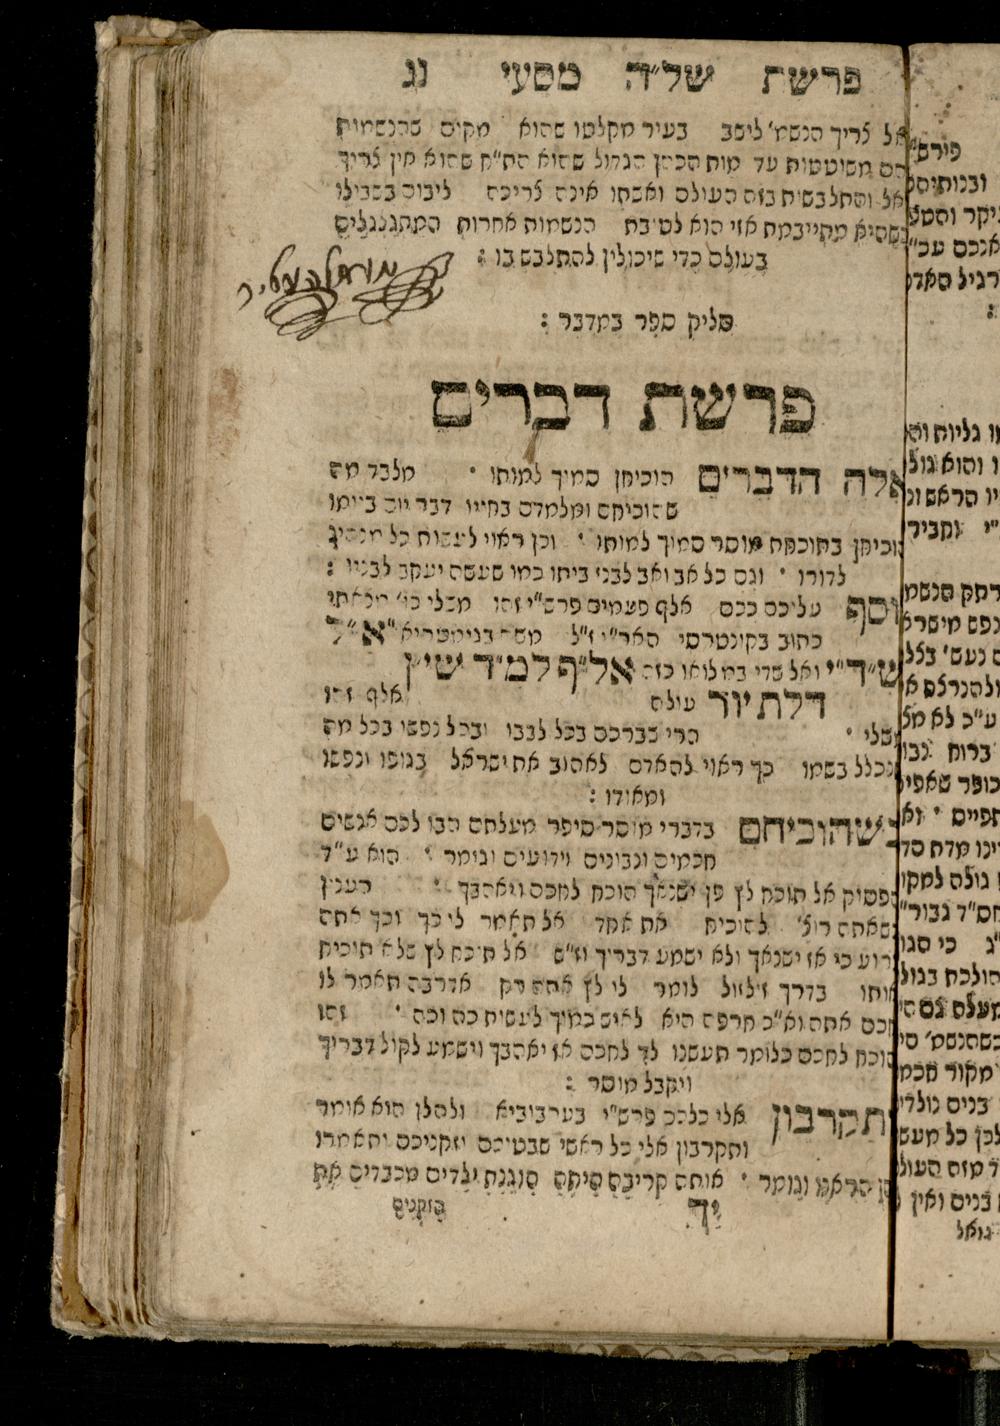 פרשת של״ה מסעי נג
אל צריך הנשמ׳ לישב בעיר מקלטו שהוא מקום שהנשמות
הם משוטטות עד מות הכהן הגדול שהוא הת״ח שהוא אין צריך
אל והתלבשות בזה העולם ואשתו אינה צריכה ליבום בשבילו
כשהיא מתייבמת אזי הוא לטובת הנשמות אחרות המתגלגלים
בעולם כדי שיכולין להתלבש בו :
סליק ספר במדבר :
פרשת דברים
אלה הדברים הוכיחן סמיך למותו ׳ מלבד מה
שהוכיחם ומלמדם בחייו דבר יום ביומו
הוכיחן בתוכחת מוסר סמוך למותו ׳ וכן ראוי לעשות כל מנהיג
לדורו ׳ וגם כל אב ואב לבני ביתו כמו שעשה יעקב לבניו :
יוסף עליכם ככם אלף פעמים פרש״י זהו משלי כו׳ מצאתי
כתוב בקונטרסי האר״י ז״ל משה בגימטריא א״ל
ש״ד״י ואל שדי במלואו כזה אל״ף למ״ד שי״ן
דלת יור עולה אלף זהו
משלי ׳ הרי שברכם בכל לבבו ובכל נפשו בכל מה
נכלל בשמו כך ראוי להאדם לאהוב את ישראל בגופו ונפשו
ומאודו :
כשהוכיחם בדברי מוסר סיפר מעלתם הבו לכם אנשים
חכמים ונבונים וידועים וגומר ׳ הוא ע״ד
הפסוק אל תוכח לץ פן ישנאך הוכח לחכם ויאהבך ׳ הענין
כשאתה רוצ׳ להוכיח את אחד אל תאמר לו כך וכך אתה
גרוע כי אז ישנאך ולא ישמע דבריך וז״ש אל תוכח לץ שלא תוכיח
אותו בדרך זילזול לומר לו לץ אתה רק אדרבה תאמר לו
חכם אתה וא״כ חרפה היא לאיש כמוך לעשות כה וכה ׳ וזהו
הוכח לחכם כלומר תעשנו לך לחכם אז יאהבך וישמע לקול דבריך
ויקבל מוסר :
ותקרבון אלי כלכם פרש״י בערבוביא ולהלן הוא אומר
ותקרבון אלי כל ראשי שבטיכם וזקניכם ותאמרו
הן הראנו וגומר ׳ אותה קריבה היתה הוגנת ילדים מכבדים את
יד הזקנים
פירש״
ובנותיהם
אנכם עכ״
רגיל
גליות
והוא גול
הראשון
נפש
נעש׳ בצל
ע״כ לא
ברוח
כופר שאפי
תפיים ׳
מדת
גולה למקו
כי
הולכת בגול
מעלה גם
כשהנשמ׳
מקור חכמ
בנים נולדי
לכן כל מעש
מזה העול
בנים ואין
גואל